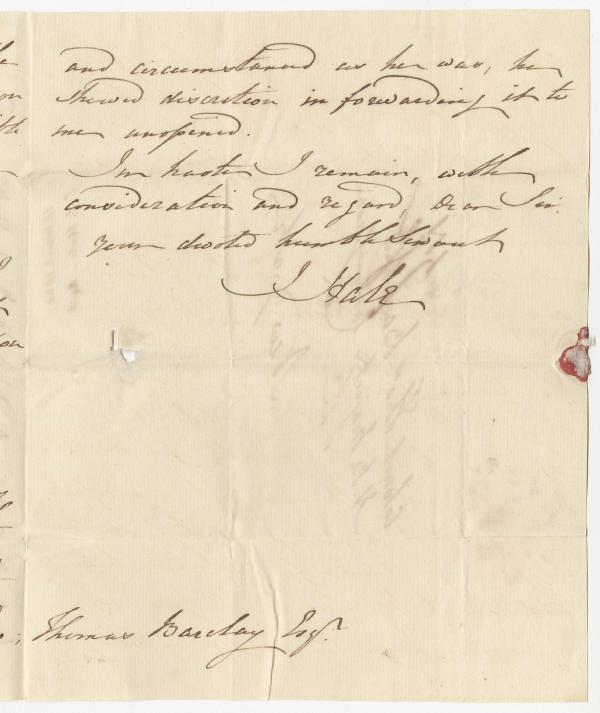 and circumstanced as he was, he
shewed discretion in forwarding it to
me unopened.
In haste I remain, with
consideration and regard, Dear Sir
your devoted humble Servant
J Hale
Thomas Barclay Esqr.